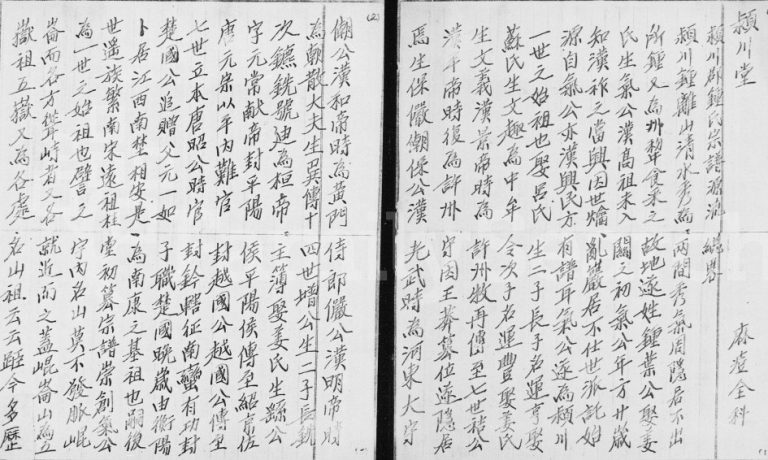 潁川堂
潁川郡鍾氏宗譜源流總畧
潁川鍾離山清水秀為兩間秀氣周隱居不出
所鍾又為州犂食采之故地遂姓鍾葉公娶姜
氏生氣公漢高祖未入關之初氣公年方廿歲
知漢祚之當興因世煽亂巖居不仕世派託始
源自氣公亦漢興民方有譜耳氣公遂為潁川
一世之始祖也娶呂氏生二子長子名運亨娶
蘇氏生文趣為中牟令次子名運豊娶姜氏
生文義漢景帝時為許州牧再傳至七世秸公
漢平帝時復為許州守因王莽篡位遂隱居
焉生保儼嘲保公漢光武時為河東大守
(2)
嘲公漢和帝時為黃門侍郎儼公漢明帝時
為朝散大夫生巽傳十四世增公生二子長銳
次鑣銳號迪為桓帝主簿娶姜氏生蹈公
字元常献帝封平陽侯平陽侯傳至紹京佐
唐元宗以平內難官封越國公越國公傳至
七世立本唐昭公時官封鈴轄征南蠻有功封
楚國公追贈父元一如子職楚國晚歲由衡陽
卜居江西南埜相安是為南康之基祖也嗣後
世遥族繁南宋遠祖柱堂初纂宗譜崇創氣公
為一世之始祖也譬之宇內名山莫不發脈崐
崙而各方聳峙者又各就近而之蓋崐崙山為五
嶽祖五嶽又為各處名山祖云云距今多歷